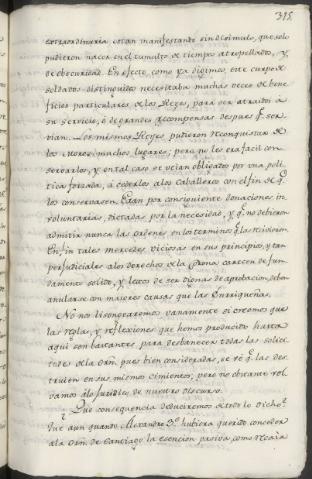 315
extraordinaria estan manifestando sin disimulo, que solo
pudieron nacer en el tumulto de tiempo atropellado, y
de obscuridad. En efecto, como ya digimos, este cuerpo de
soldados distinguidos necesitaba muchas veces de bene
ficios particulares de los Reyes, para ser atraidos a
su servicio, ó de grandes recompensas despues q.e ser
vian. Los mismos Reyes pudieron reconquistar de
los Moros muchos lugares; pero no les era facil con
servarlos, y en tal caso se veian obligados por una poli
tica forzada, á cederlos alos Caballeros con el fin de q.e
los conservasen. Eran por consiguiente donaciones in
voluntarias, dictadas por la necesidad, y q.e no debieron
admitir nunca las ordenes en los terminos q.e las recivieron.
En fin tales mercedes viciosas en su principio, y tan
perjudiciales alos derechos de la Corona carecen de fun
damento solido, y lexos de ser dignas de aprobacion, deben
anularse con mayores causas que las Enriqueñas.
No nos lisongearemos vanamente si creemos que
las reglas, y reflexiones que hemos producido hasta
aqui son bastantes para desbanecer todas las solici
tudes de la Orñ. pues bien consideradas, se vé q.e las des
truien en sus mismos cimientos; pero no obstante vol
vamos alo juridico de nuestro discurso.
Que consequencia deduciremos de todo lo dicho?
Que aun quando Alexandro 3.o hubiera querido conceder
ala Orñ. de Santiago la esencion pasiva, como recaìa